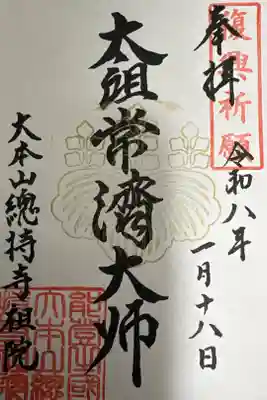 復興祈願
奉拝
令和八年
一月十八日
太祖常濟大师
大本山總持寺祖院